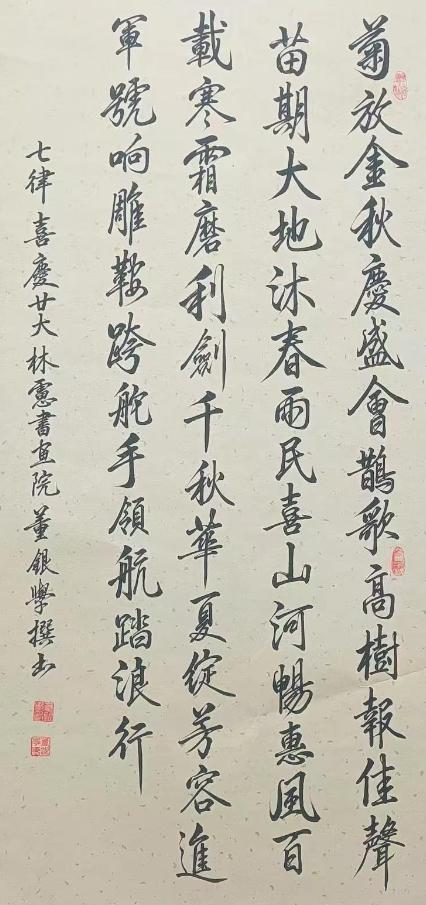 菊放金秋慶盛會鵲歌高樹報佳聲
苗期大地沐春雨民喜山河暢惠風百
載寒霜磨利劍千秋華夏綻芳容進
軍號响雕鞍跨舵手領航踏浪行
七律喜慶廿大林憲書画院董銀學撰书